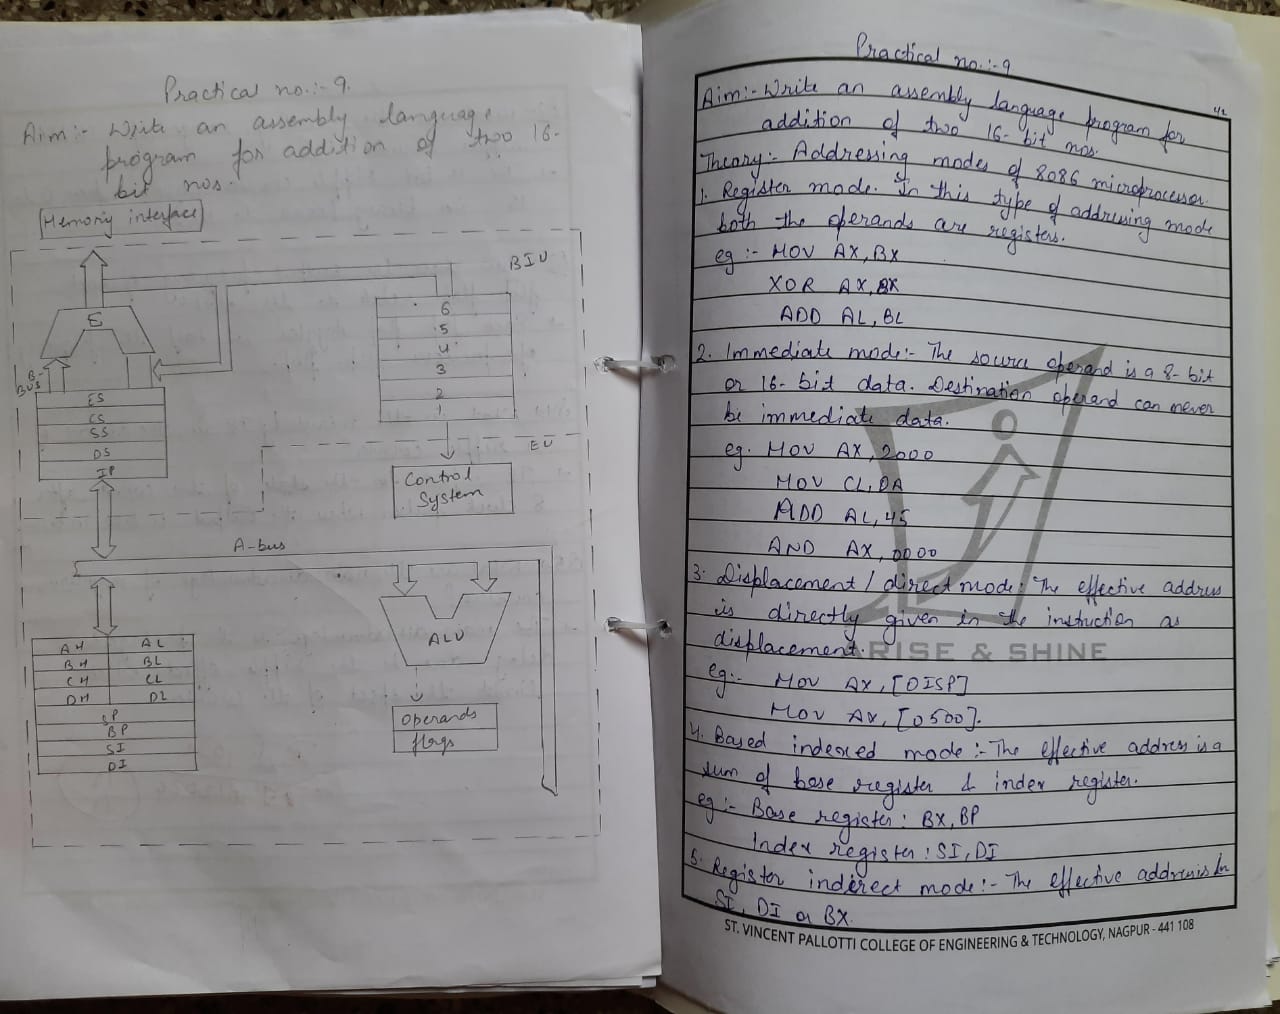 Practical no.:- 9.
Aim:- Write an assembly language
program for addition of two 16-
bit nos.
Memory interface
BIU
Σ
B-
BUS
ES
CS
SS
DS
IP
6
5
4
3
2
1
EU
Control
System
A-bus
ALU
AH AL
BH BL
CH CL
DH DL
SP
BP
SI
DI
Operands
flags
Practical no.:-9
42
Aim:- Write an assembly language program for
addition of two 16-bit nos.
Theory:- Addressing modes of 8086 microprocessor.
1. Register mode. In this type of addressing mode
both the operands are registers.
eg:- MOV AX, BX
XOR AX, BX
ADD AL, BL
2. Immediate mode:- The source operand is a 8-bit
or 16-bit data. Destination operand can never
be immediate data.
eg. MOV AX, 2000
MOV CL, 0A
ADD AL, 45
AND AX, 0000
3. Displacement / direct mode: The effective address
is directly given in the instruction as
displacement.
eg:- MOV AX, [DISP]
MOV AX, [0500].
4. Based indexed mode :- The effective address is a
sum of base register & index register.
eg:- Base register: BX, BP
Index register: SI, DI
5. Register indirect mode:- The effective address is in
SI, DI or BX.
ARISE & SHINE
ST. VINCENT PALLOTTI COLLEGE OF ENGINEERING & TECHNOLOGY, NAGPUR - 441 108